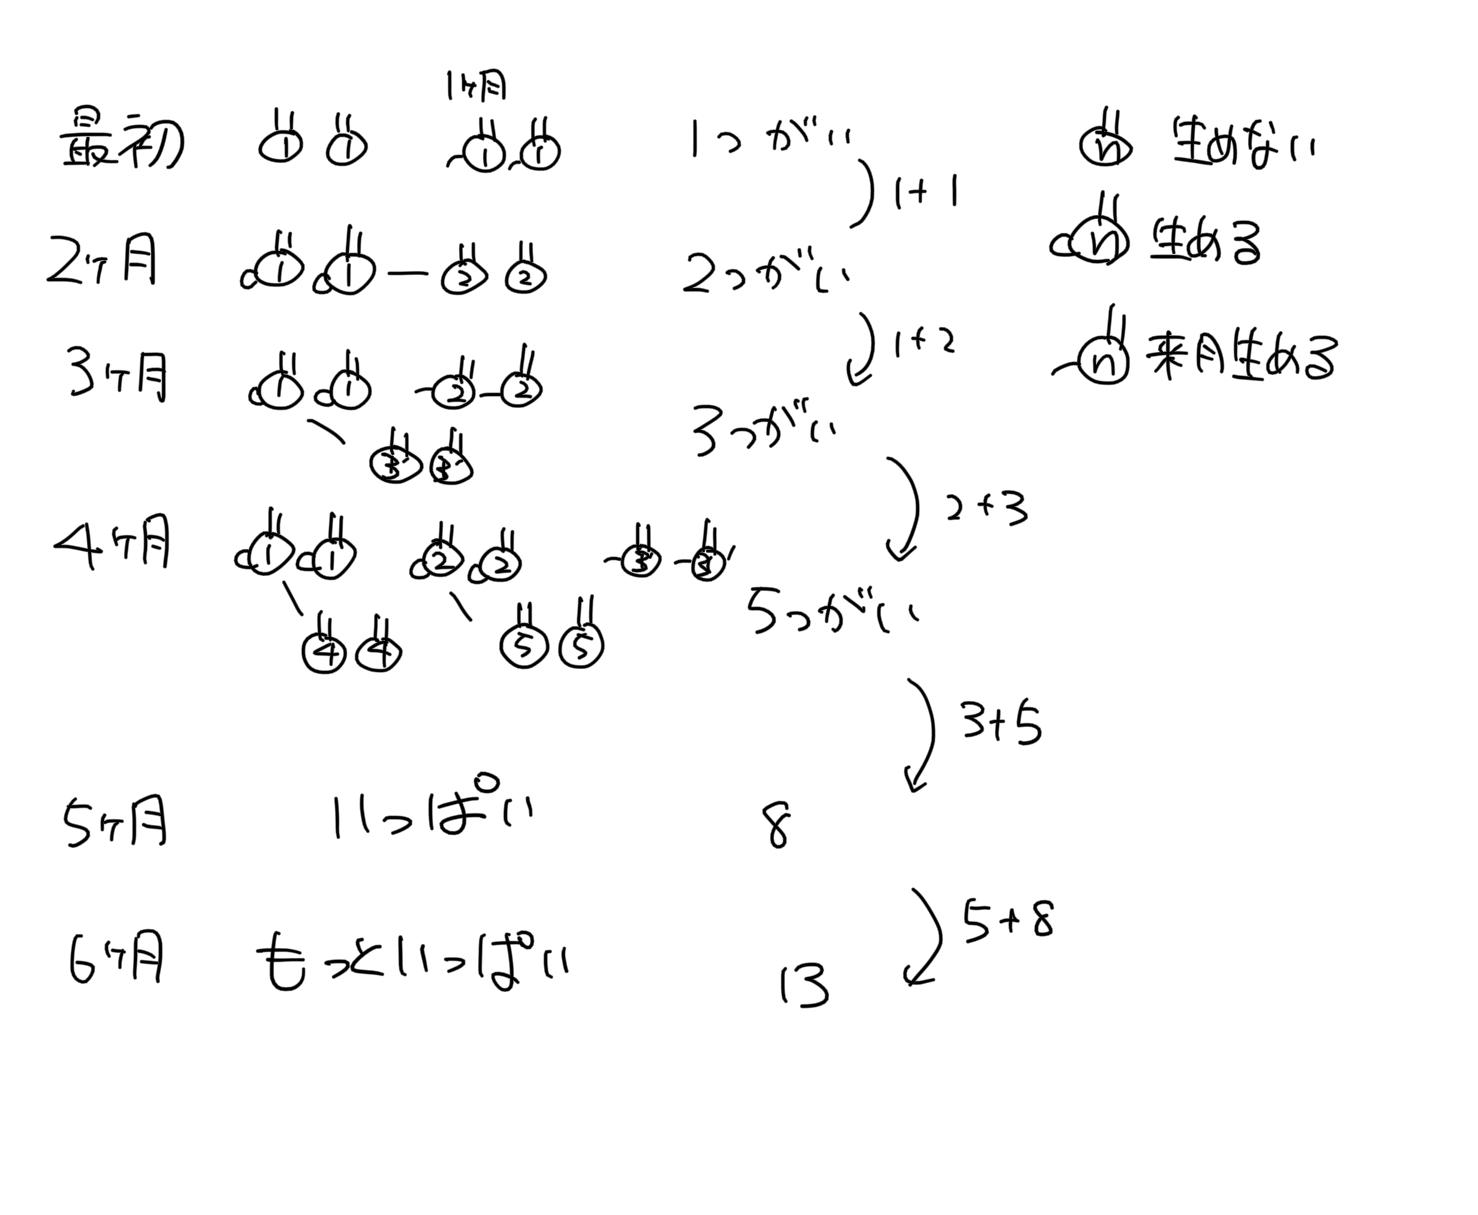 1ヶ月
最初 1 1 1 1 1つがい n 生めない
1+1
2ヶ月 1 1 2 2 2つがい n 生める
1+2
3ヶ月 1 1 2 2 n 来月生める
3 3 3つがい
2+3
4ヶ月 1 1 2 2 3 3
4 4 5 5 5つがい
3+5
5ヶ月 いっぱい 8
5+8
6ヶ月 もっといっぱい 13